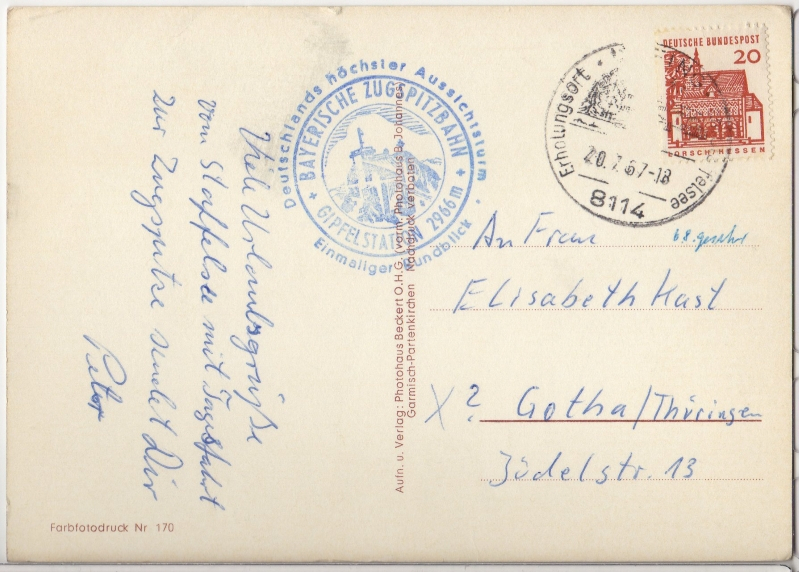 Viele Urlaubsgrüße
vom Staffelsee mit Tagesfahrt
zur Zugspitze sendet Dir
Peter
Farbfotodruck Nr 170
Deutschlands höchster Aussichtsturm
+ BAYERISCHE ZUGSPITZBAHN +
GIPFELSTATION 2966 m
Einmaliger Rundblick
Aufn. u. Verlag: Photohaus Beckert O.H.G. (vorm. Photohaus B. Johannes)
Garmisch-Partenkirchen Nachdruck verboten
Erholungsort
20.7.67-18
8114
felsee
DEUTSCHE BUNDESPOST
20
LORSCH/HESSEN
An Frau
Elisabeth Hast
X ? Gotha/Thüringen
Jüdelstr. 13